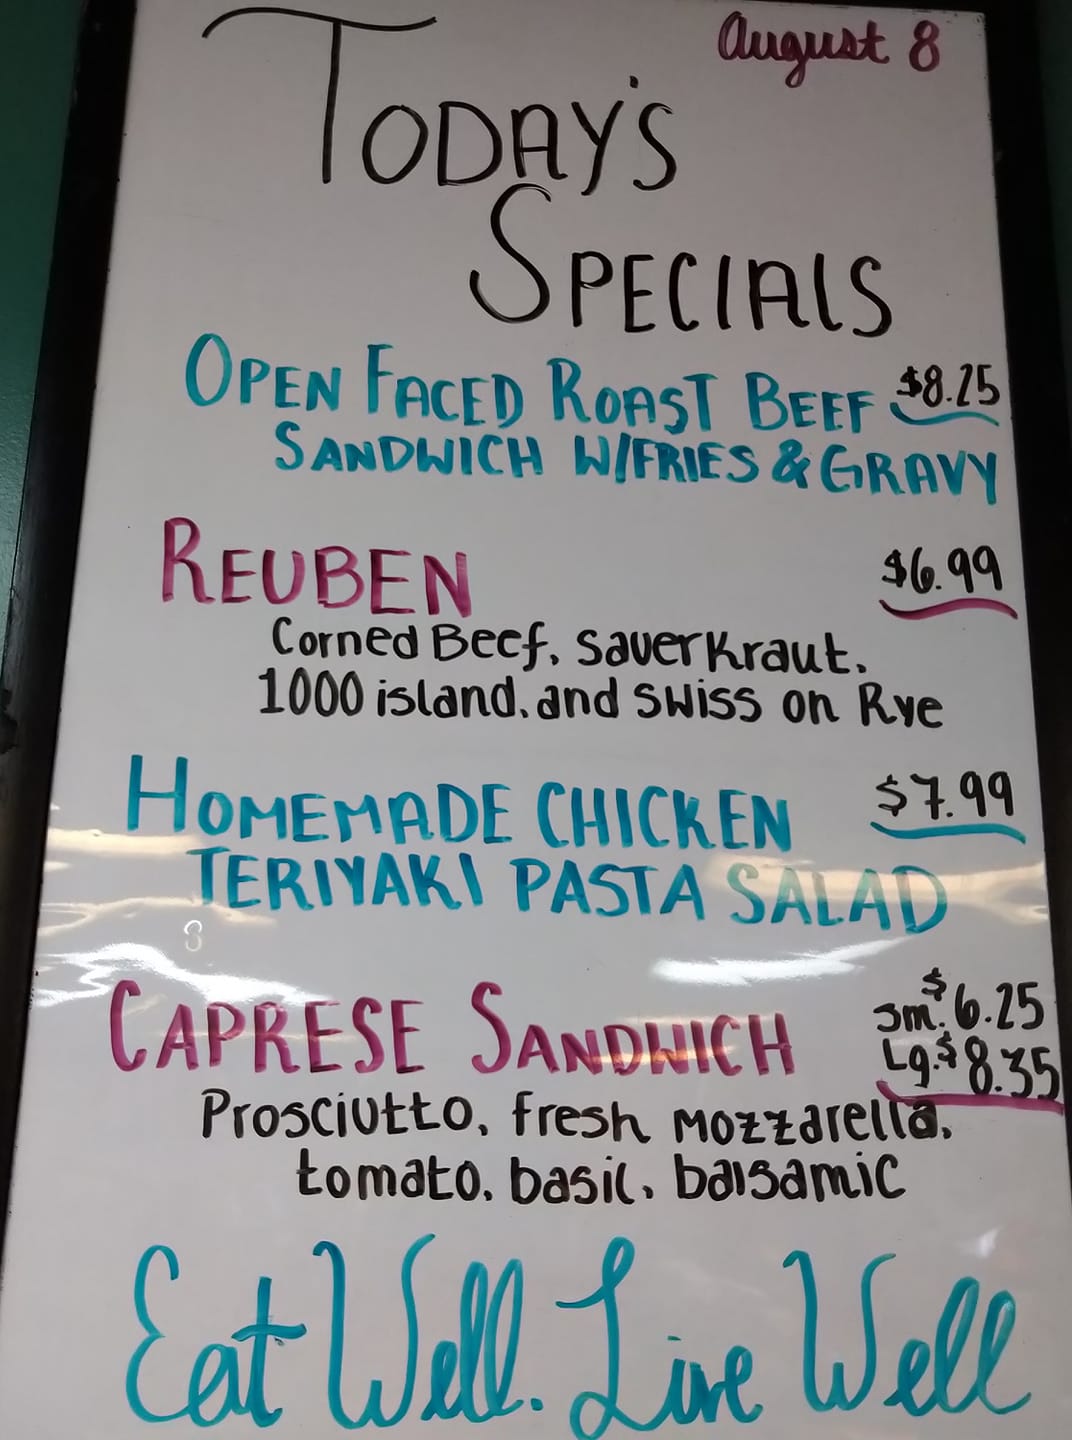 August 8
TODAY'S
SPECIALS
OPEN FACED ROAST BEEF $8.25
SANDWICH W/FRIES & GRAVY
REUBEN $6.99
Corned Beef, sauerkraut,
1000 island, and swiss on Rye
HOMEMADE CHICKEN $7.99
TERIYAKI PASTA SALAD
CAPRESE SANDWICH sm. $6.25
Lg. $8.35
Prosciutto, fresh mozzarella,
tomato, basil, balsamic
Eat Well. Live Well